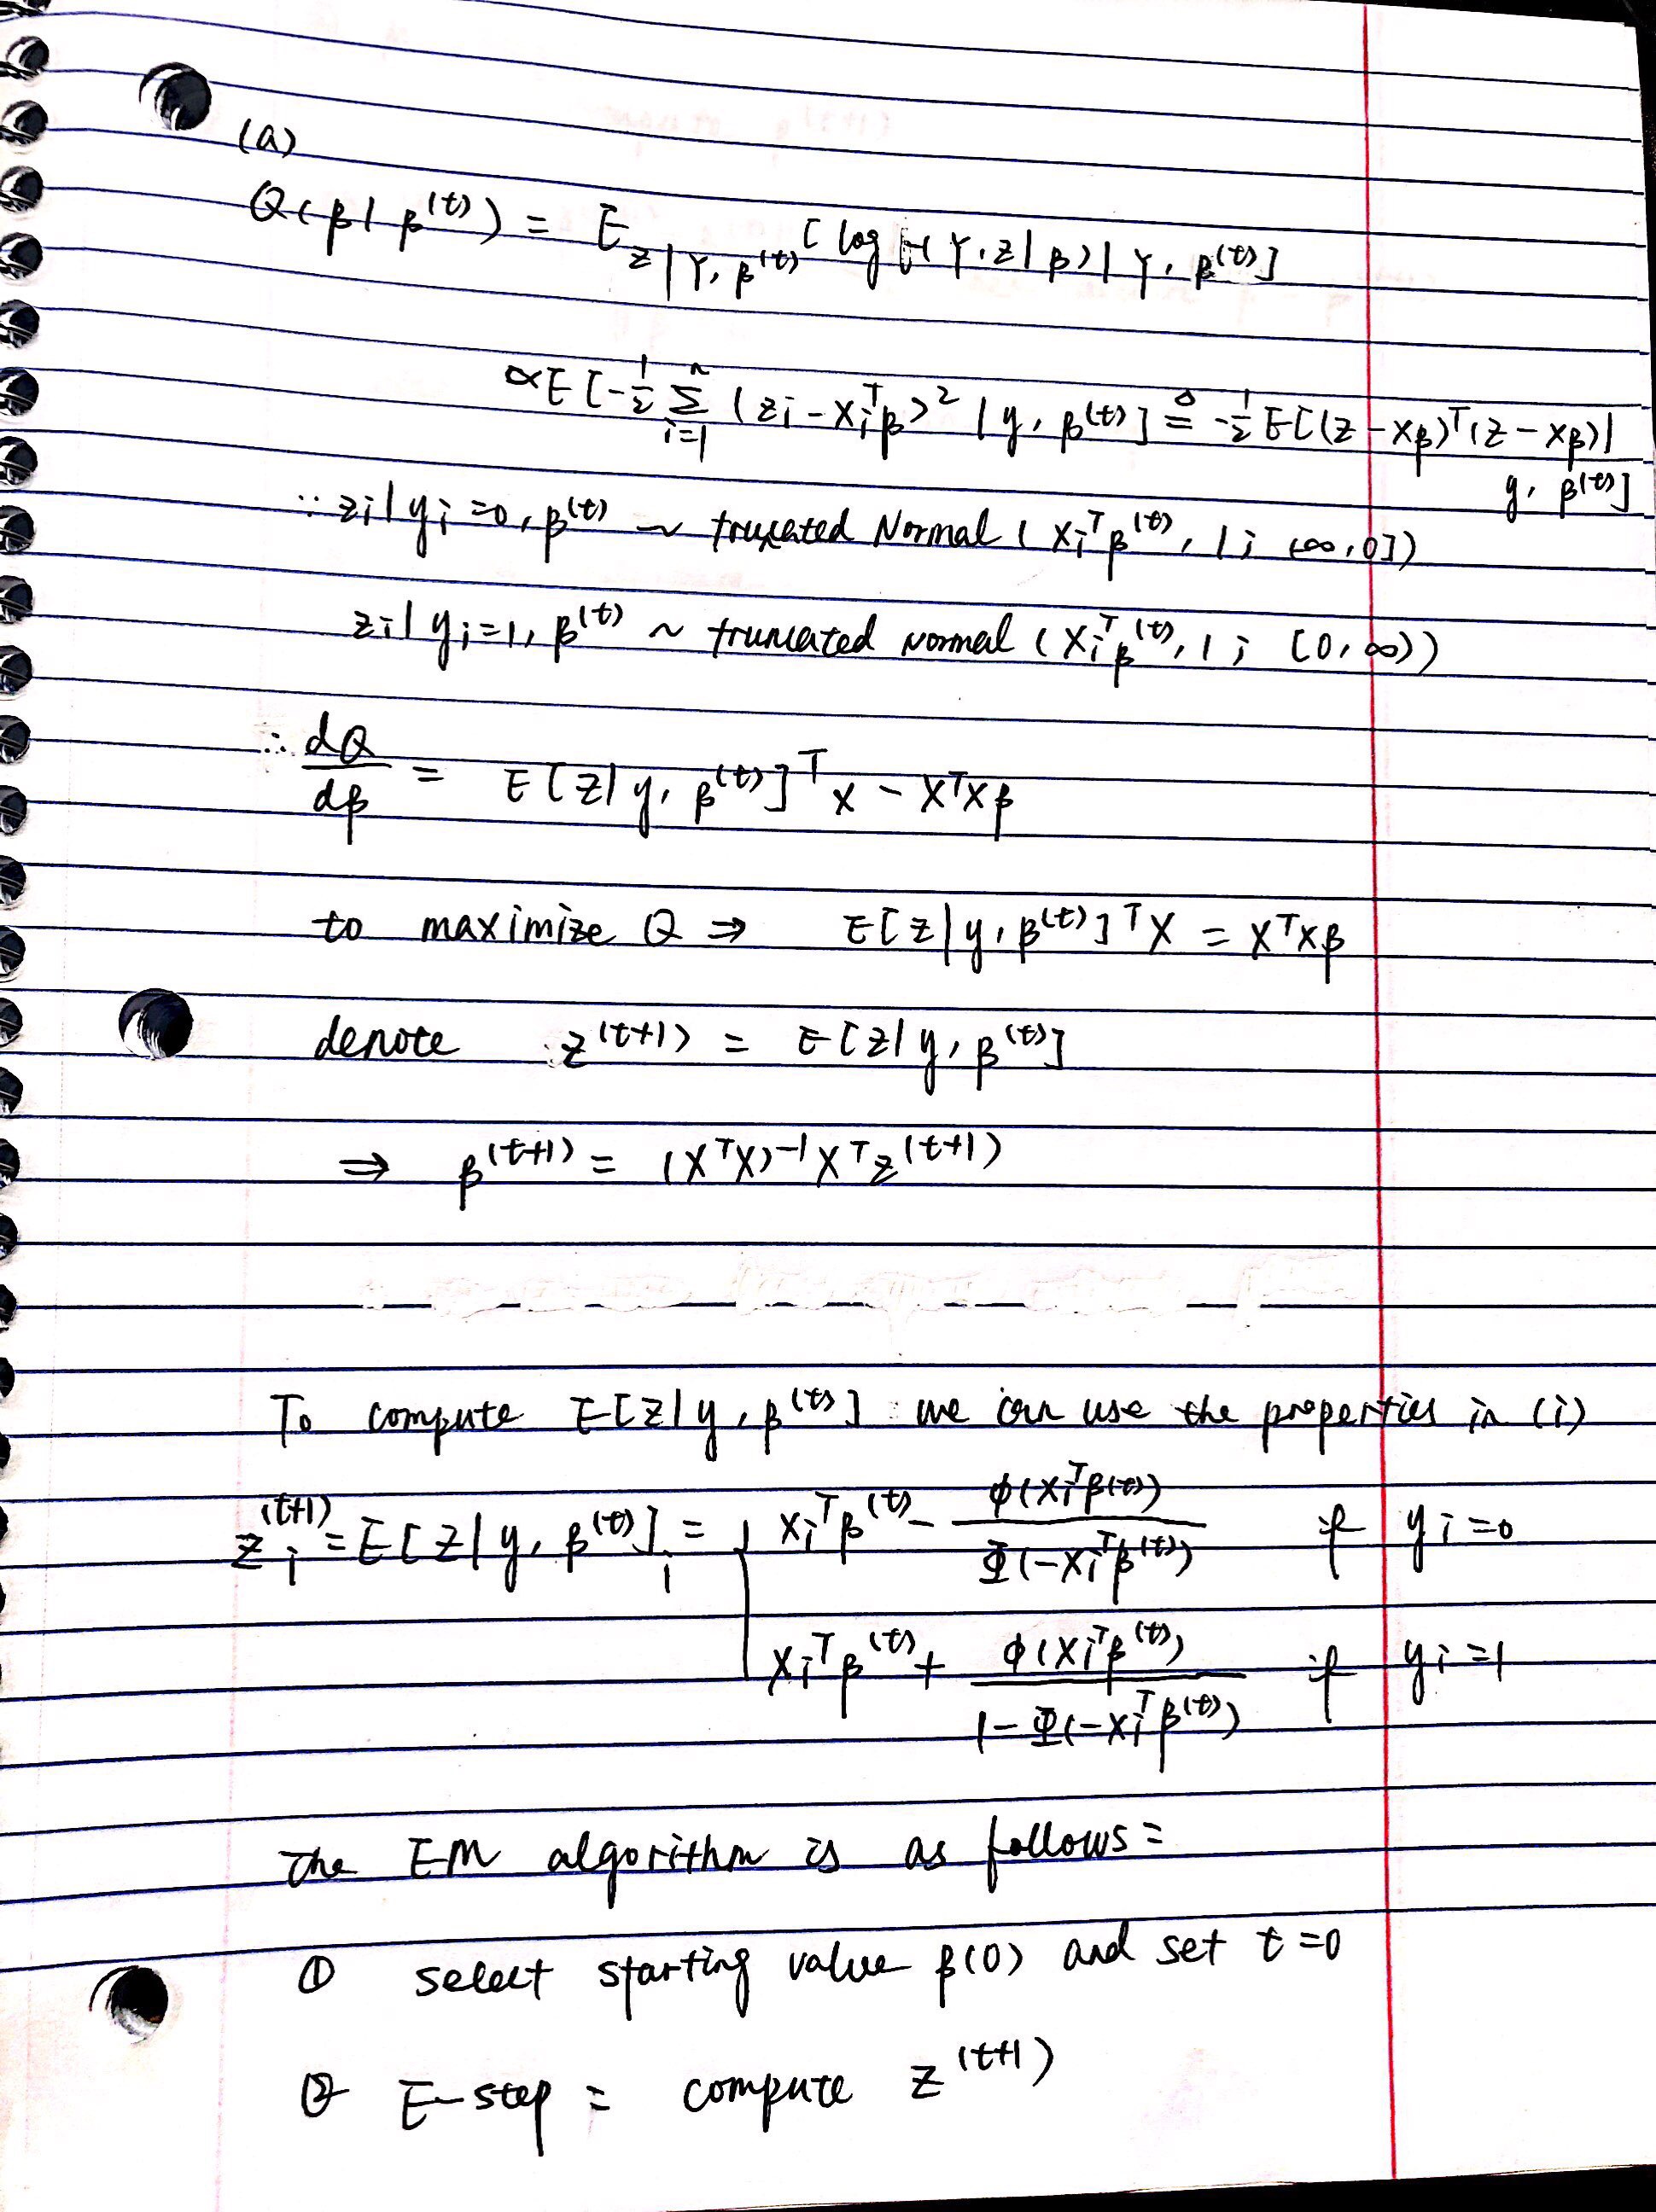 (a)
Q(β|β^(t)) = E_{Z|Y,β^(t)} [log f(Y,Z|β)|Y,β^(t)]
∝ E[-1/2 Σ_{i=1}^n (z_i - x_i^T β)^2 | y, β^(t)] ≜ -1/2 E[(Z-Xβ)^T(Z-Xβ)|
y, β^(t)]
∵ z_i|y_i=0, β^(t) ~ truncated Normal (x_i^T β^(t), 1; (-∞,0])
z_i|y_i=1, β^(t) ~ truncated normal (x_i^T β^(t), 1; [0,∞))
∴ dQ/dβ = E[Z|y, β^(t)]^T X - X^T X β
to maximize Q ⇒ E[Z|y, β^(t)]^T X = X^T X β
denote z^(t+1) = E[Z|y, β^(t)]
⇒ β^(t+1) = (X^T X)^-1 X^T z^(t+1)
To compute E[Z|y, β^(t)] we can use the properties in (i)
z_i^(t+1) = E[Z|y, β^(t)]_i = { x_i^T β^(t) - φ(x_i^T β^(t)) / Φ(-x_i^T β^(t)) if y_i=0
x_i^T β^(t) + φ(x_i^T β^(t)) / (1-Φ(-x_i^T β^(t))) if y_i=1
The EM algorithm is as follows:
① select starting value β(0) and set t=0
② E-step: compute z^(t+1)